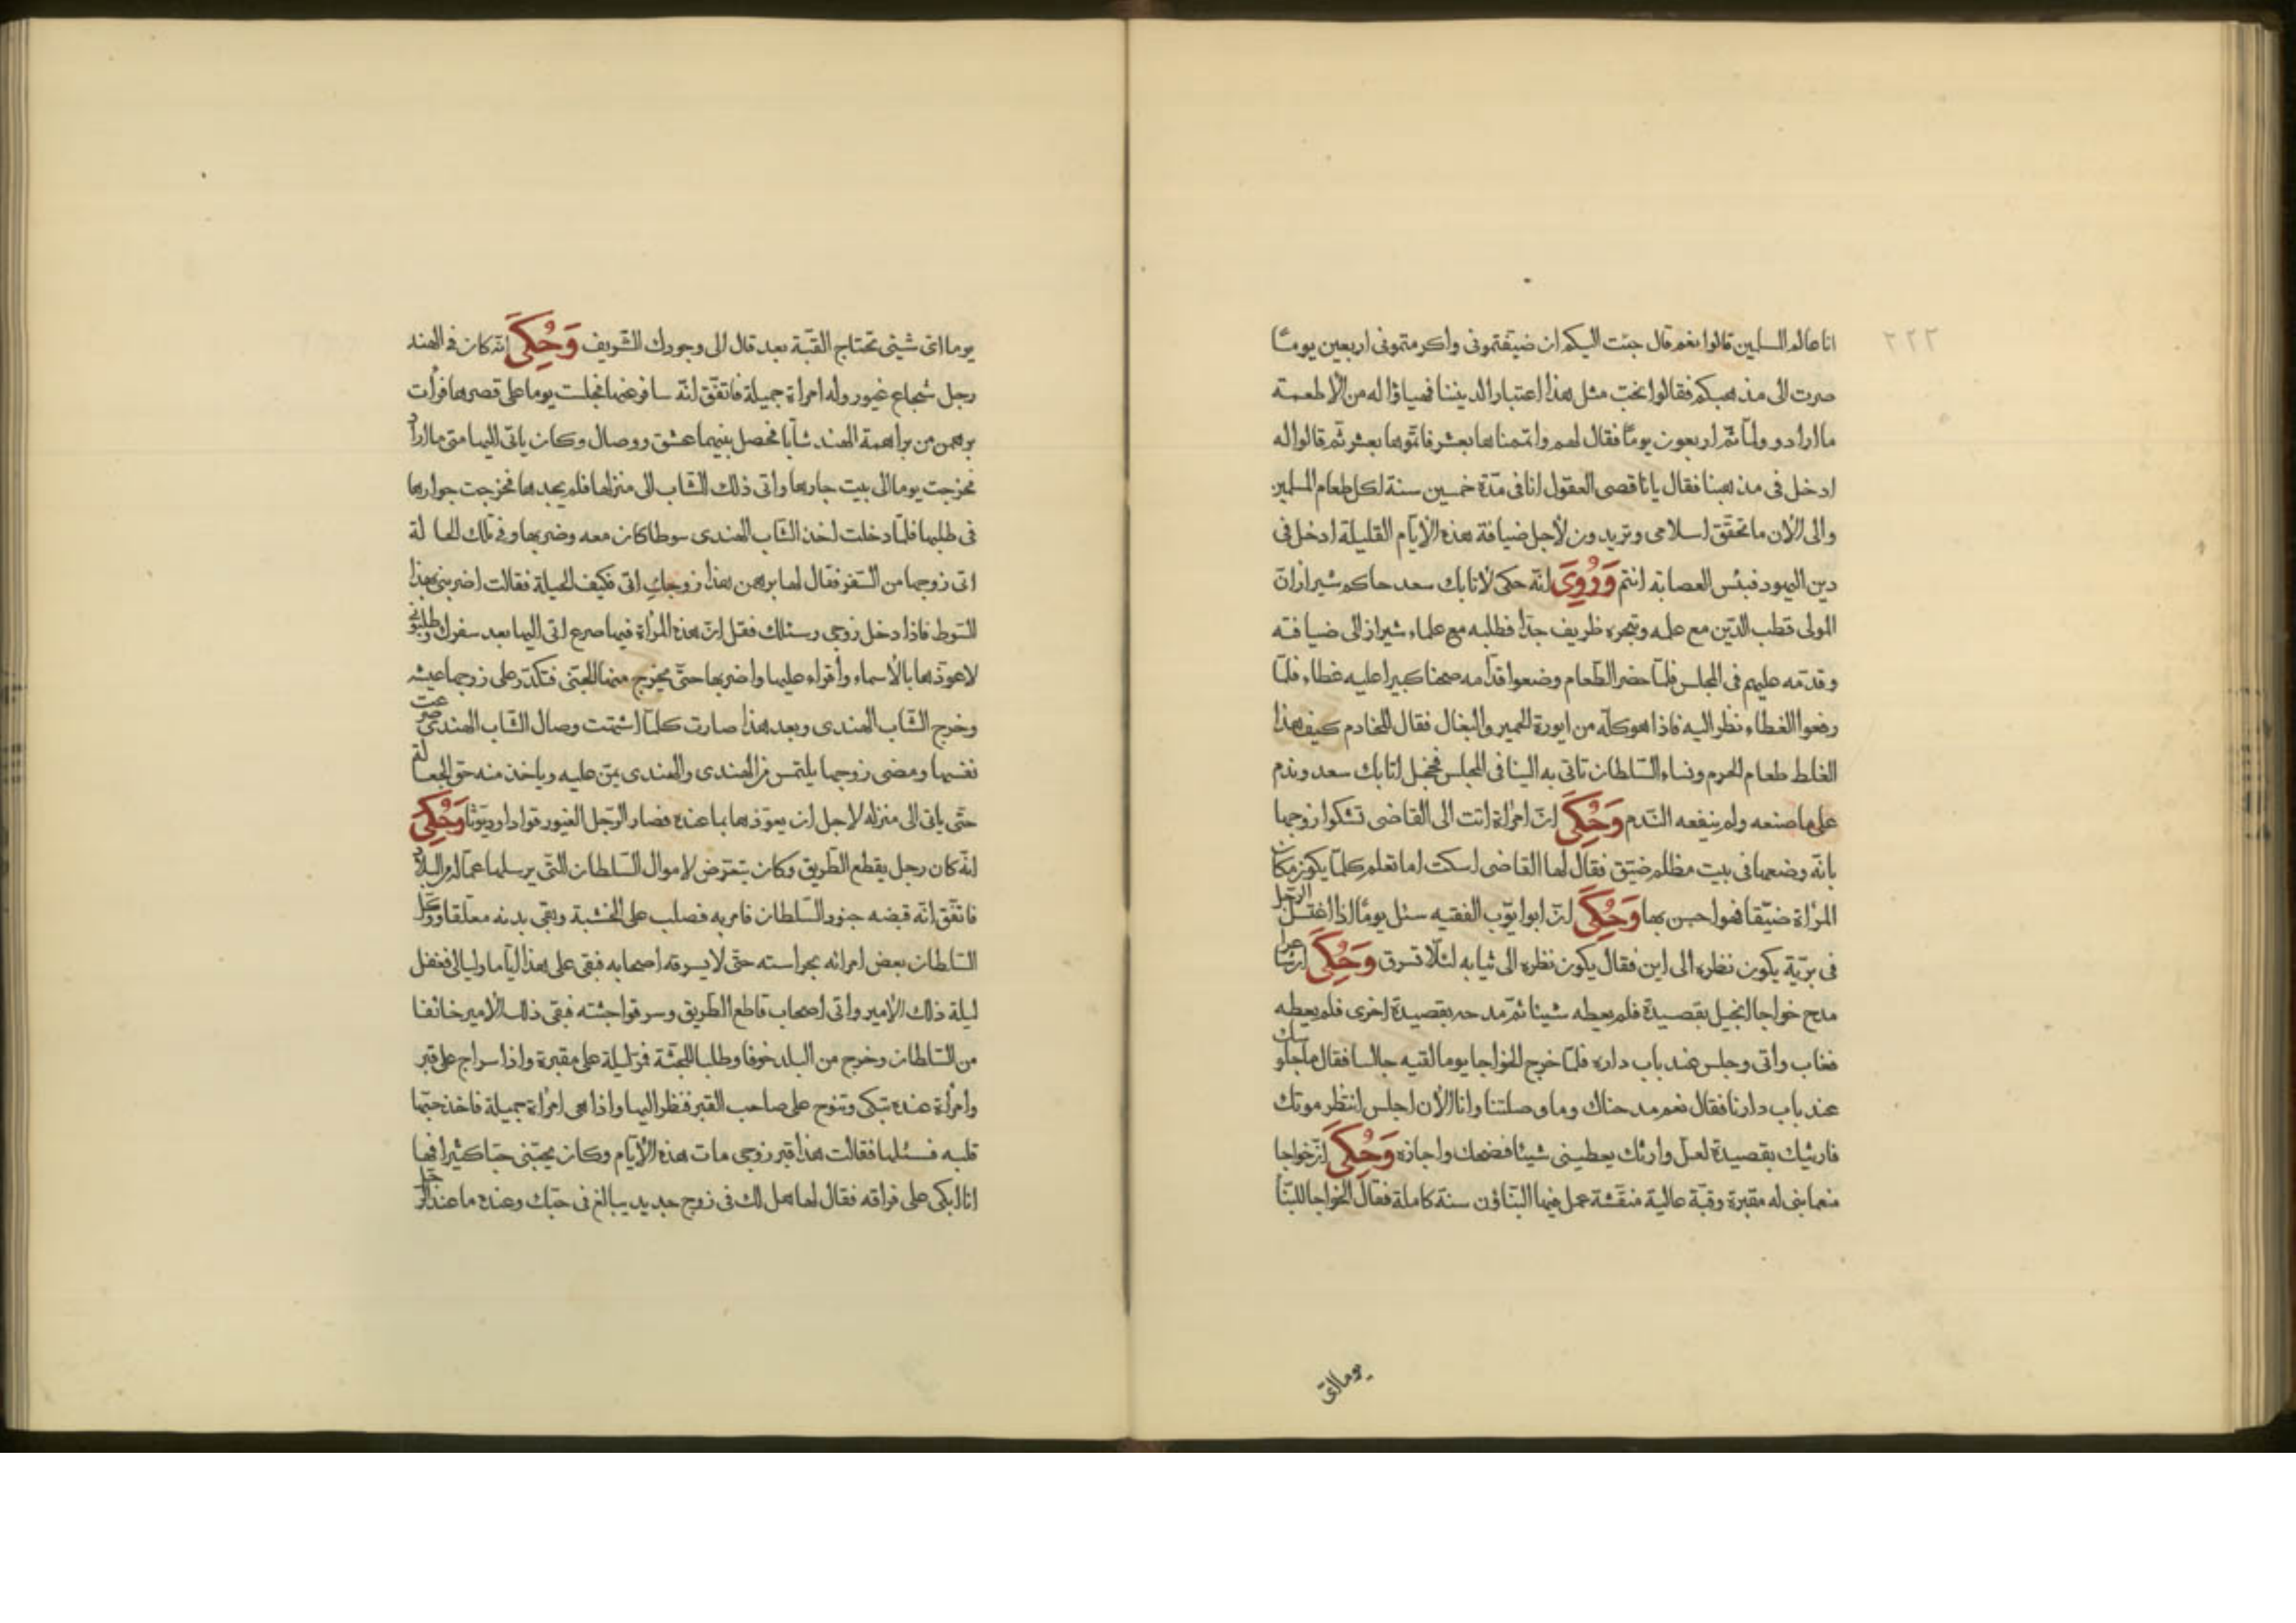 ٢٢٢
انا عالم المسلمين قالوا نعم قال جئت اليكم ان ضيفتموني واكرمتموني اربعين يومًا
صرت الى مذهبكم فقالوا نحبّ مثل هذا اعتبارا لديننا فهياؤا له من الاطعمة
ما ارادو ولمّا تمّ اربعون يومًا فقال لهم واتممناها بعشر فاتموها بعشر ثمّ قالوا له
ادخل في مذهبنا فقال يا ناقصي العقول انا في مدّة خمسين سنة اكل طعام المسلمين
والى الأن ما تحقّق اسلامي وتريدون لأجل ضيافة هذه الأيّام القليلة ادخل في
دين اليهود فبئس العصابة انتم وَرُوِيَ انّه حكى لأتابك سعد حاكم شيراز ان
المولى قطب الدّين مع علمه وتبحره ظريف جدّا فطلبه مع علماء شيراز الى ضيافته
وقدّمه عليهم في المجلس فلمّا حضر الطّعام وضعوا قدّامه صحنا كبيرا عليه غطاء فلمّا
رفعوا الغطاء نظر اليه فاذا هو كلّه من ايورة الحمير والبغال فقال للخادم كيف هذا
الغلط طعام الحرم ونساء السّلطان تاتي به الينا في المجلس فخجل اتابك سعد وندم
على ما صنعه ولم ينفعه النّدم وَحُكِيَ انّ امرأة اتت الى القاضي تشكوا زوجها
بانّه وضعها في بيت مظلم ضيّق فقال لها القاضي اسكت اما تعلم كلّما يكون مكان
المرأة ضيّقا فهوا حسن بها وَحُكِيَ انّ ابوايّوب الفقيه سئل يومًا اذا اغتسل الرّجل
في بريّة يكون نظره الى اين فقال يكون نظره الى ثيابه لئلّا تسرق وَحُكِيَ ان شاعرا
مدح خواجا البخيل بقصيدة فلم يعطه شيئا ثمّ مدحه بقصيدة اخرى فلم يعطه
فغاب واتى وجلس عند باب داره فلمّا خرج الخواجا يوما لقيه جالسا فقال ما جلوسك
عند باب دارنا فقال نعم مدحناك وما وصلتنا وانا الأن اجلس انتظر موتك
فارثيك بقصيدة لعل وارثك يعطيني شيئا فضحك واجازه وَحُكِيَ انّ خواجا
منعما بنى له مقبرة وقبّة عالية منقّشة عمل فيها البنّاؤن سنة كاملة فقال الخواجا للبنّا
يوما اىّ
يوما اىّ شيئى تحتاج القبّة بعد قال الى وجودك الشّريف وَحُكِيَ انّه كان في الهند
رجل شجاع غيور وله امراة جميلة فاتفّق انّه سافر عنها فجلست يوما على قصرها فرأت
برهمن من براهمة الهند شابّا فحصل بينهما عشق ووصال وكان ياتي اليها متى ما اراد
فخرجت يوما الى بيت جارها واتى ذلك الشّاب الى منزلها فلم يجدها فخرجت جوارها
في طلبها فلمّا دخلت اخذ الشّاب الهندى سوطا كان معه وضربها وفي تلك الحالة
اتى زوجها من السّفر فقال لها برهمن هذا زوجكِ اتى فكيف الحيلة فقالت اضربني بهذا
السّوط فاذا دخل زوجي وسئلك فقل انّ هذه المرأة فيها صرع اتى اليها بعد سفرك وطلبوني
لاعوّذها بالأسماء وأقراء عليها واضربها حتّى يخرج منها الجنّى فتكدّر على زوجها عيشه
وخرج الشّاب الهندى وبعد هذا صارت كلّما اشتهت وصال الشّاب الهندى صرعت
نفسها ومضى زوجها يلتمس من الهندى والهندى يمنّ عليه وياخذ منه حق الجعالة
حتّى ياتى الى منزله لاجل ان يعوّذها بما عنده فصار الرّجل الغيور قوّادا وديّوثا وَحُكِيَ
انّه كان رجل يقطع الطّريق وكان يتعرّض لاموال السّلطان التّي يرسلها عمّاله من البلاد
فاتفّق انّه قبضه جنود السّلطان فامر به فصلب على الخشبة وبقي بدنه معلّقا ووكّل
السّلطان بعض امرائه بحراسته حتّى لا يسرقه اصحابه فبقي على هذا ايّاما وليالي فغفل
ليلة ذلك الأمير واتى اصحاب قاطع الطّريق وسرقوا جثته فبقي ذلك الأمير خائفا
من السّلطان وخرج من البلد خوفا وطلبا للجثّة فمرّ ليلة على مقبرة واذا سراج على قبر
وامرأة عنده تبكى وتنوح على صاحب القبر فنظر اليها واذا هي امرأة جميلة فاخذ حبّها
قلبه فسئلها فقالت هذا قبر زوجي مات هذه الأيّام وكان يحبّني حبّا كثيرا فها
انا ابكى على فراقه فقال لها هل لك في زوج جديد يبالغ في حبّك وعنده ما عند الرّجل